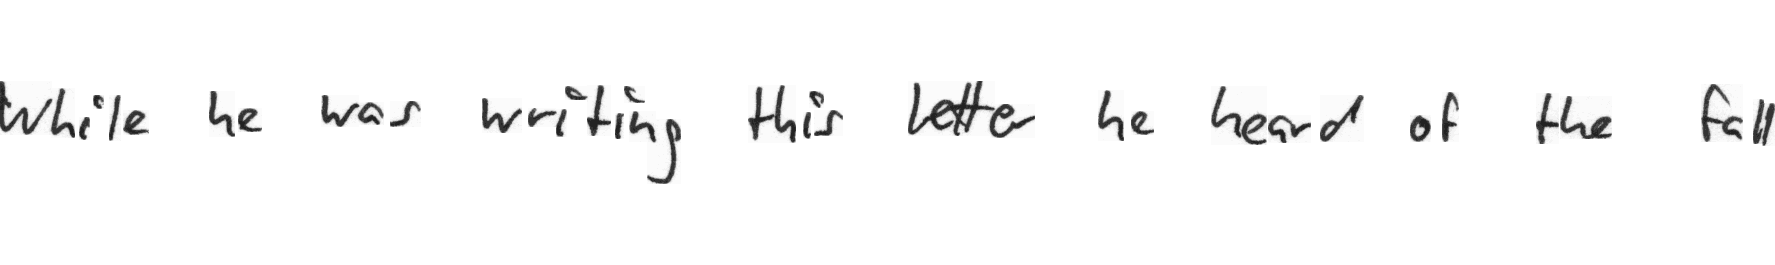 While he was writing this letter he heard of the fall